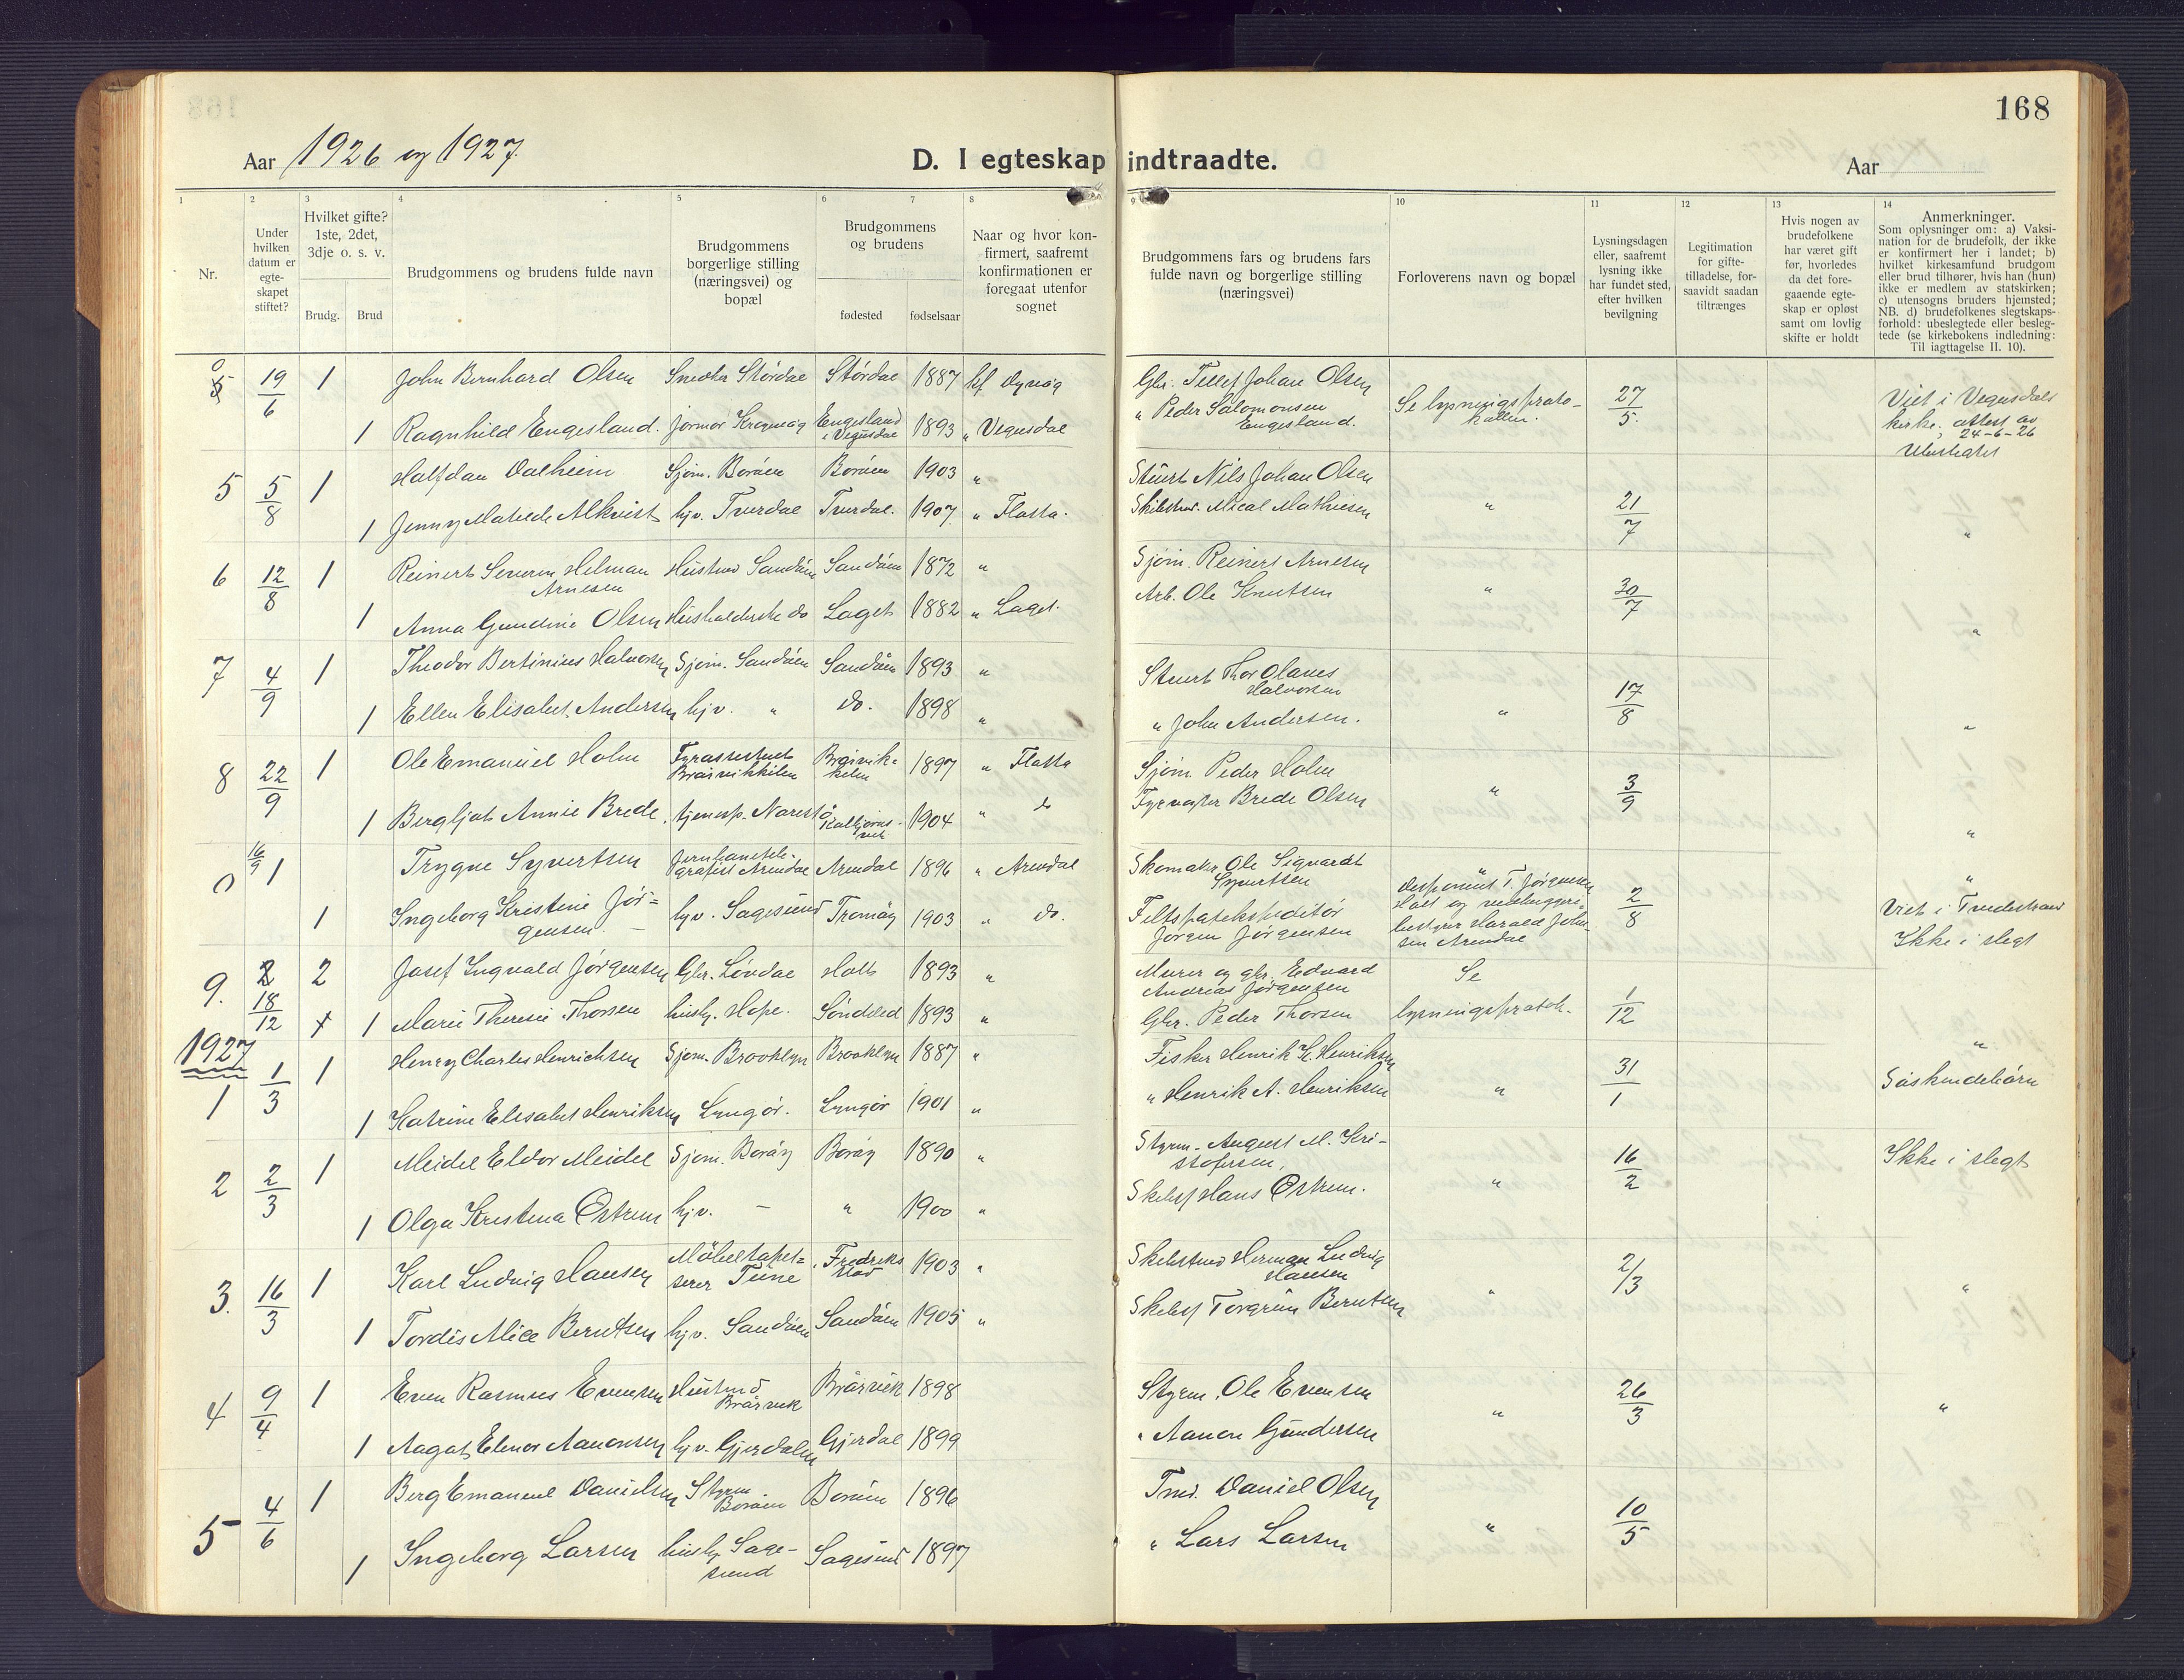 168
Aar 1926 og 1927.
D. I egteskap indtraadte.
Aar
1 2 3 4 5 6 7 8 9 10 11 12 13 14
Nr.
Under hvilken datum er egte-skapet stiftet?
Hvilket gifte? 1ste, 2det, 3dje o. s. v.
Brudg. Brud
Brudgommens og brudens fulde navn
Brudgommens borgerlige stilling (næringsvei) og bopæl
Brudgommens og brudens
fødested fødselsaar
Naar og hvor kon-firmert, saafremt konfirmationen er foregaat utenfor sognet
Brudgommens fars og brudens fars fulde navn og borgerlige stilling (næringsvei)
Forloverens navn og bopæl
Lysningsdagen eller, saafremt lysning ikke har fundet sted, efter hvilken bevilgning
Legitimation for gifte-tilladelse, for-saavidt saadan tiltrænges
Hvis nogen av brudefolkene har været gift før, hvorledes da det fore-gaaende egte-skap er opløst samt om lovlig skifte er holdt
Anmerkninger.
Som oplysninger om: a) Vaksi-nation for de brudefolk, der ikke er konfirmert her i landet; b) hvilket kirkesamfund brudgom eller brud tilhører, hvis han (hun) ikke er medlem av statskirken; c) utensogns bruders hjemsted; NB. d) brudefolkenes slegtskaps-forhold: ubeslegtede eller besleg-tede (se kirkebokens indledning: Til iagttagelse II. 10).
0 19/6 1 John Bernhard Olsen Snedker Stördae Stördae 1887 kf Dyvåg Gbr. Tellef Johan Olsen Se lysningsproto-kollen 27/5 Viet i Vegusdals kirke. attest av 24-6-26
1 Ragnhild Engesland. jormor Engesland i Vegusdae 1893 " Vegusdae " Peder Salomonsen Engesland.
5 5/8 1 Halfdan Dalheim Sjøm. Boröen Boröen 1903 " Stuert Nils Johan Olsen " 21/7 "
1 Jenny Matilde Alkvist hjv. Tverdae Tverdae. 1907 " Flosta. Mical Mathiesen
6 12/8 1 Reinert Severin Helman Arnesen Sandöen Sandöen 1872 " Sjøm. Reinert Arnesen " 30/7 "
1 Anna Gundine Olsen Husholderske do Laget 1882 " Laget. Arb. Ole Knutsen
7 4/9 1 Theodor Bertinius Halvorsen Sjøm. Sandöen Sandöen 1893 " Stuert Thor Olaves Halvorsen " 17/8 "
1 Ellen Elisabet Andersen hjv. " do. 1898 " " John Andersen.
8 22/9 1 Ole Emanuel Holm Fyrassistent Bråsvikkilen 1897 " Flosta Sjøm. Peder Holm " 3/9 "
1 Bergljot Annie Brede tjenesp. Narestö 1904 " do Fyrvogter Brede Olsen
0 16/9 1 Trygve Syvertsen Jernbanetele-grafist Arendal Arendal 1896 " Arendal Skomaker Ole Sigvardt Syvertsen Disponent T. Jörgensen 2/8 Viet i Tvedestrand
1 Ingeborg Kristine Jör=gensen. hjv. Sagesund Tromöy 1903 " do. Feltspatekspeditör Jörgen Jörgensen Arendal Ikke i slegt
9. 18/12 2 Josef Ingvald Jörgensen Gbr. Lövdae Holt 1893 " Murer og gbr. Edvard Andreas Jörgensen Se lysningsprotok. 1/12 "
1 Marie Theresie Thorsen husby. Hope. Söndeled 1893 " Gbr. Peder Thorsen
1927
1 1/3 1 Henry Charles Henrichsen Sjøm. Brooklyn Brooklyn 1887 " Fisker Henrik K. Henriksen " 31/1 Söskendebörn
1 Katrine Elisabet Henriksen Lyngör. Lyngör 1901 " " Henrik A. Henriksen
2 2/3 1 Meidel Eldor Meidel Sjøm. Boröy Boröy 1890 " Styrm. August M. Kri-stofersen. " 16/2 Ikke i slegt
1 Olga Kristina Östrem hjv. – " 1900 " Hans Östrem.
3. 16/3 1 Karl Ludvig Hansen Möbeltapet=serer Tune Fredriks stad 1903 " Herman Ludvig Hansen " 2/3 "
1 Tordis Alice Berntsen hjv. Sandöen Sandöen 1905 " Torgrim Berntsen
4 9/4 1 Even Rasmus Evensen Bråsvik Bråsvik 1898 Styrm. Ole Evensen " 26/3 "
1 Aagot Elenor Aanonsen hjv. Gjerdalen Gjerdal 1899 " Aanon Gundersen
5 4/6 1 Berg Emanuel Danielsen Styrm Boröen Boröen 1896 Tmd. Daniel Olsen " 10/5
1 Ingeborg Larsen husby Sage-sund Sagesund 1897 " Lars Larsen